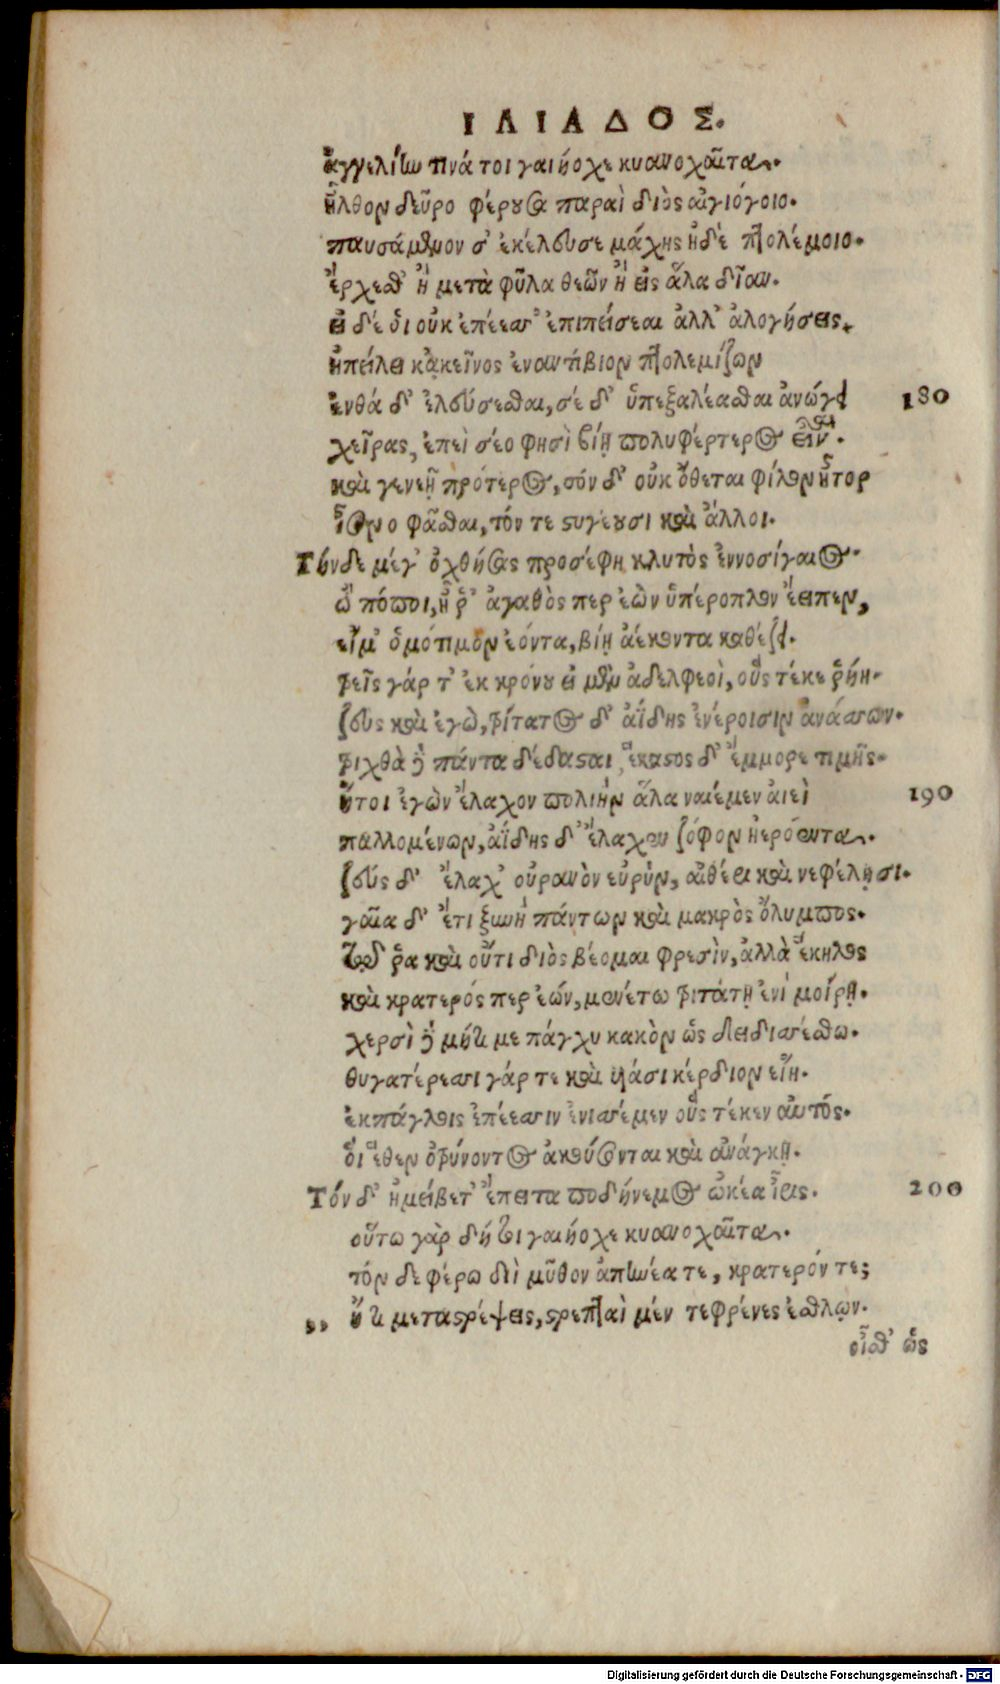 ΙΛΙΑΔΟΣ.
ἀγγελίην τινά τοι γαιήοχε κυανοχαῖτα.
ἦλθον δεῦρο φέρουσα παραὶ διὸς αἰγιόχοιο.
παυσάμενον σ' ἐκέλευσε μάχης ἠδὲ πτολέμοιο.
ἔρχεσθ' ἢ μετὰ φῦλα θεῶν ἢ εἰς ἅλα δῖαν.
εἰ δέ ὅι οὐκ ἐπέεσσ' ἐπιπείσεαι ἀλλ' ἀλογήσεις,
ἠπείλει κἀκεῖνος ἐναντίβιον πτολεμίζων
ἐνθά δ' ἐλεύσεσθαι, σέ δ' ὑπεξαλέασθαι ἀνώγει 180
χεῖρας, ἐπεὶ σέο φησὶ βίῃ πολυφέρτερος εἶναι.
καὶ γενεῇ πρότερος, σόν δ' οὐκ ὄθεται φίλον ἦτορ
ἶσον ο φᾶσθαι, τόν τε στυγέουσι καὶ ἄλλοι.
Τήνδε μέγ' ὀχθήσας προσέφη κλυτὸς ἐννοσίγαιος.
ὢ πόποι, ἦ ῥ' ἀγαθὸς περ ἐὼν ὑπέροπλον ἔειπεν,
εἴ μ' ὁμότιμον ἐόντα, βίῃ ἀέκοντα καθέξει.
τρεῖς γάρ τ' ἐκ κρόνου εἰμὲν ἀδελφεοὶ, οὓς τέκε ῥήη.
ζεὺς καὶ ἐγὼ, τρίτατος δ' ἀΐδης ἐνέροισιν ἀνάσσων.
τριχθὰ δὲ πάντα δέδασται, ἕκαστος δ' ἔμμορε τιμῆς.
ἤτοι ἐγὼν ἔλαχον πολιὴν ἅλα ναιέμεν αἰεὶ 190
παλλομένων, ἀΐδης δ' ἔλαχεν ζόφον ἠερόεντα.
ζεύς δ' ἔλαχ' οὐρανὸν εὐρὺν, αἰθέρι καὶ νεφέλῃσι.
γαῖα δ' ἔτι ξυνὴ πάντων καὶ μακρὸς ὄλυμπος.
τῷ ῥα καὶ οὔτι διὸς βέομαι φρεσὶν, ἀλλὰ ἕκηλος
καὶ κρατερός περ ἐών, μενέτω τριτάτῃ ἐνὶ μοίρῃ.
χερσὶ δὲ μήτι με πάγχυ κακὸν ὣς δειδισσέσθω.
θυγατέρεσσι γάρ τε καὶ υἱάσι κέρδιον εἴη.
ἐκπάγλοις ἐπέεσσιν ἐνισσέμεν οὓς τέκεν αὐτός.
ὅι ἕθεν ὀτρύνοντος ἀκούσονται καὶ ἀνάγκῃ.
Τόν δ' ἠμείβετ' ἔπειτα ποδήνεμος ὠκέα ἶρις. 200
οὕτω γὰρ δή τοι γαιήοχε κυανοχαῖτα.
τόν δε φέρω διὶ μῦθον ἀπηνέα τε, κρατερόν τε;
,, ἤ τι μεταστρέψεις, στρεπταὶ μέν τε φρένες ἐσθλῶν.
οἶσθ' ὡς
Digitalisierung gefördert durch die Deutsche Forschungsgemeinschaft - DFG